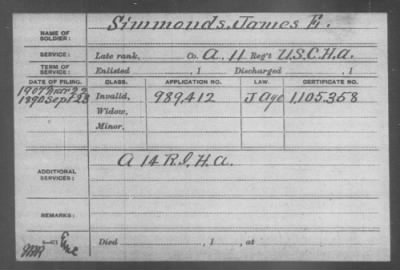 NAME OF SOLDIER: Simmonds, James E.
SERVICE: Late rank, Co. A, 11 Reg't U.S.C.H.A.
TERM OF SERVICE: Enlisted , 1 Discharged , 1
DATE OF FILING. CLASS. APPLICATION NO. LAW. CERTIFICATE NO.
1907 Mar 22
1890 Sept 23 Invalid, 989,412 J Age 1,105,358
Widow,
Minor,
ADDITIONAL SERVICES: A 14 R.I.H.A.
REMARKS:
Died , 1 , at